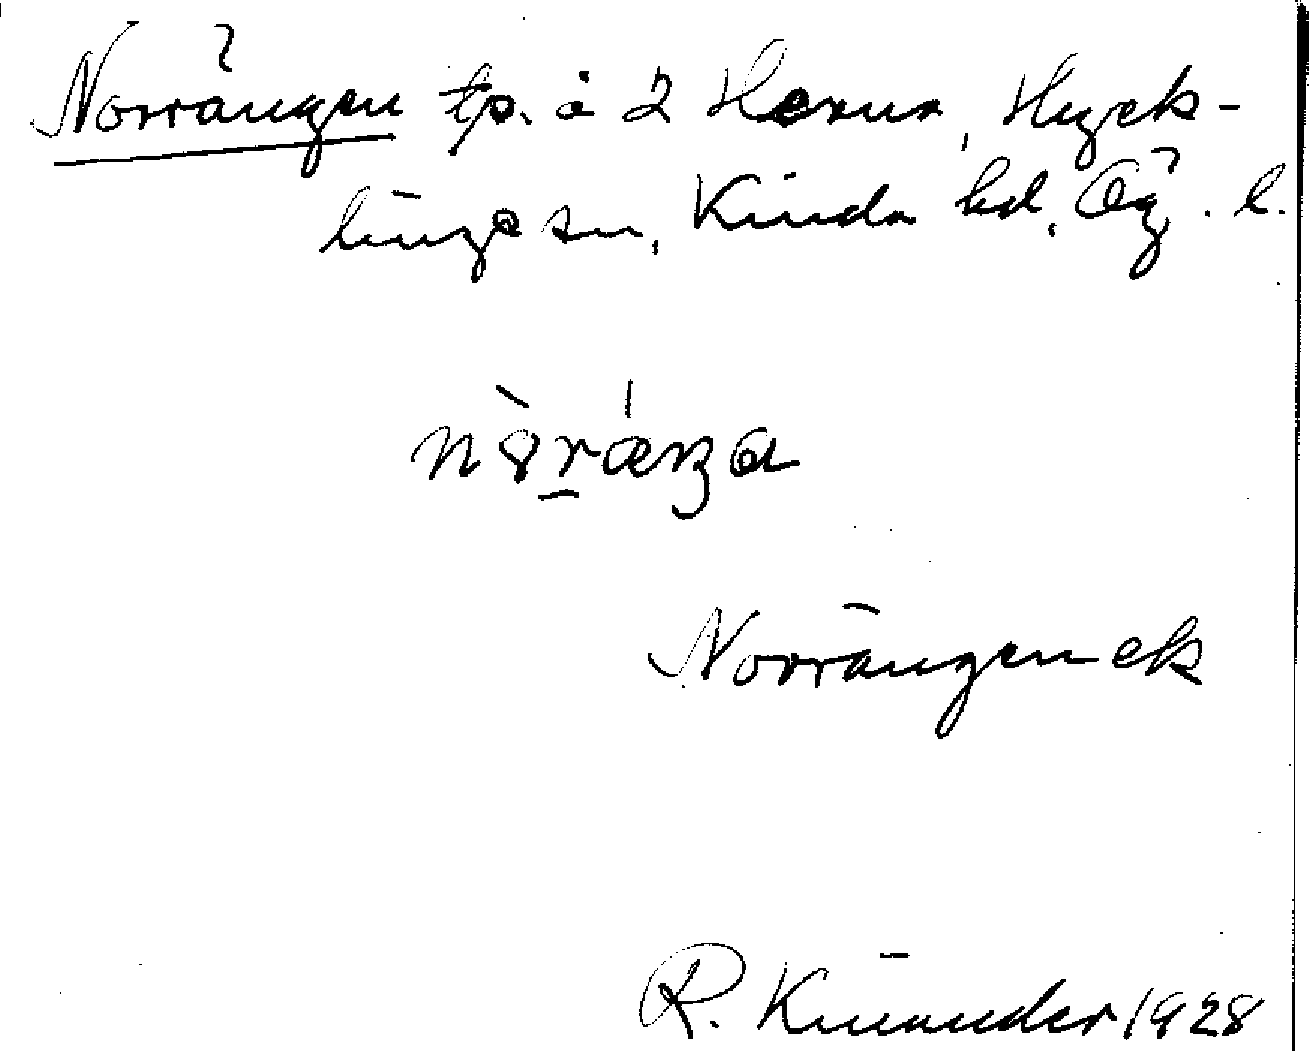 Norrängen tp. å 2 Herna, Hyck-
linge sn, Kinda hd, Ög. l.
nòrænga
Norrängen ek
R. Kinander 1928